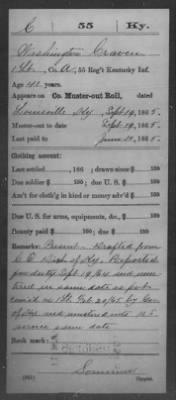 C 55 Ky.
Washington Craven
1 Lt., Co. A, 55 Reg't Kentucky Inf.
Age 42 years.
Appears on Co. Muster-out Roll, dated
Louisville Ky, Sept 19, 1865.
Muster-out to date Sept 19, 1865.
Last paid to June 30, 1865.
Clothing account:
Last settled, 186 ; drawn since $ 100
Due soldier $ 100; due U. S. $ 100
Am't for cloth'g in kind or money adv'd $ 100
Due U. S. for arms, equipments, &c., $ 100
Bounty paid $ 100; due $ 100
Remarks: Present- Drafted from
Dist of Ky. Reported
for duty Sept 19/64 and mus
tered in same date as
1st Feb 20/65 by Gov
of Ky and mustered into U S
service same date
Book mark:
(861) Copyist.